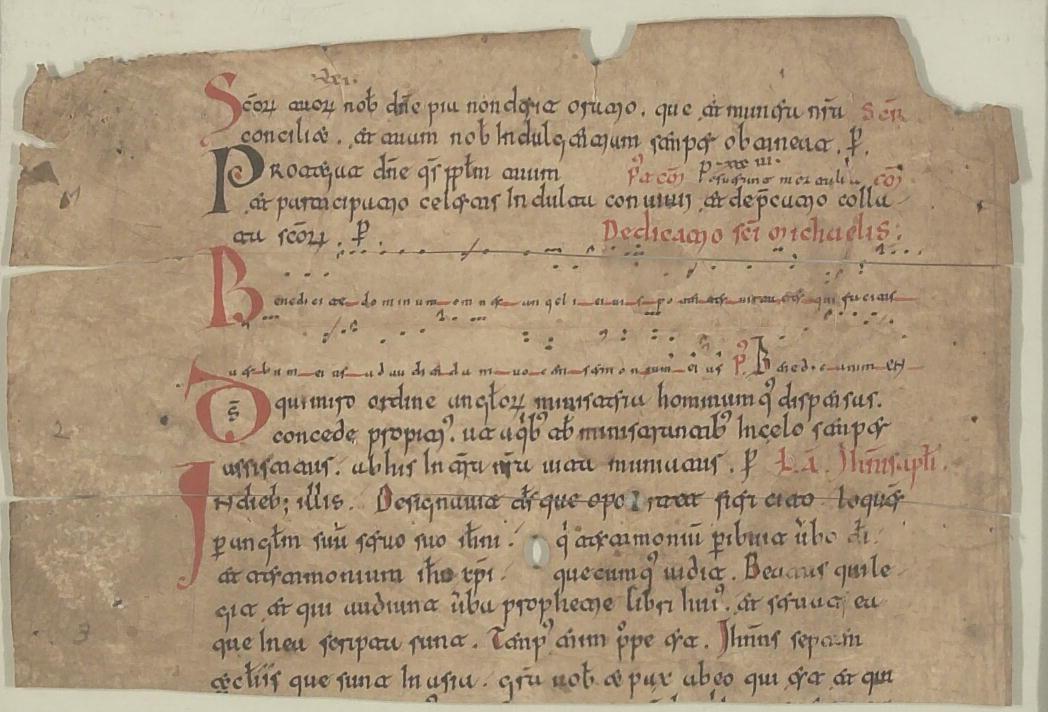 Scoꝝ tuoꝝ nob dne pia non desit oratio. que et munera nra Scd
conciliet. et tuam nob Indulgentiam semper obtineat. P.
Protegat dne qs pplm tuum Pa co co
et participatio celestis Indulta conuiuii et deptatio colla
ta scoꝝ. P. Dedicatio sci michaelis:
Benedicite dominum omnes angeli eius potentes uirtute qui facitis
uerbum eius ad audiendam uocem sermonum eius P Benedic anima
Ds qui miro ordine angloꝝ ministeria hominumq dispensas.
concede propitius. ut a qb tibi ministrantib In celo semper
assistitur. ab his In terra nra uita muniatur. P L. a. Ihnis apli.
In dieb; illis. Designauit ds que oportet fieri cito loquens
per anglm suu seruo suo ihni. q testimoniu peribuit ubo di.
et testimonium ihu xpi. quecumq uidit. Beatus qui le
git et qui audiunt uba prophetie libri hui. et seruat ea
que In ea scripta sunt. Temp enim ppe est. Ihnis septem
ecliis que sunt In asia. gra uob et pax ab eo qui est et qui